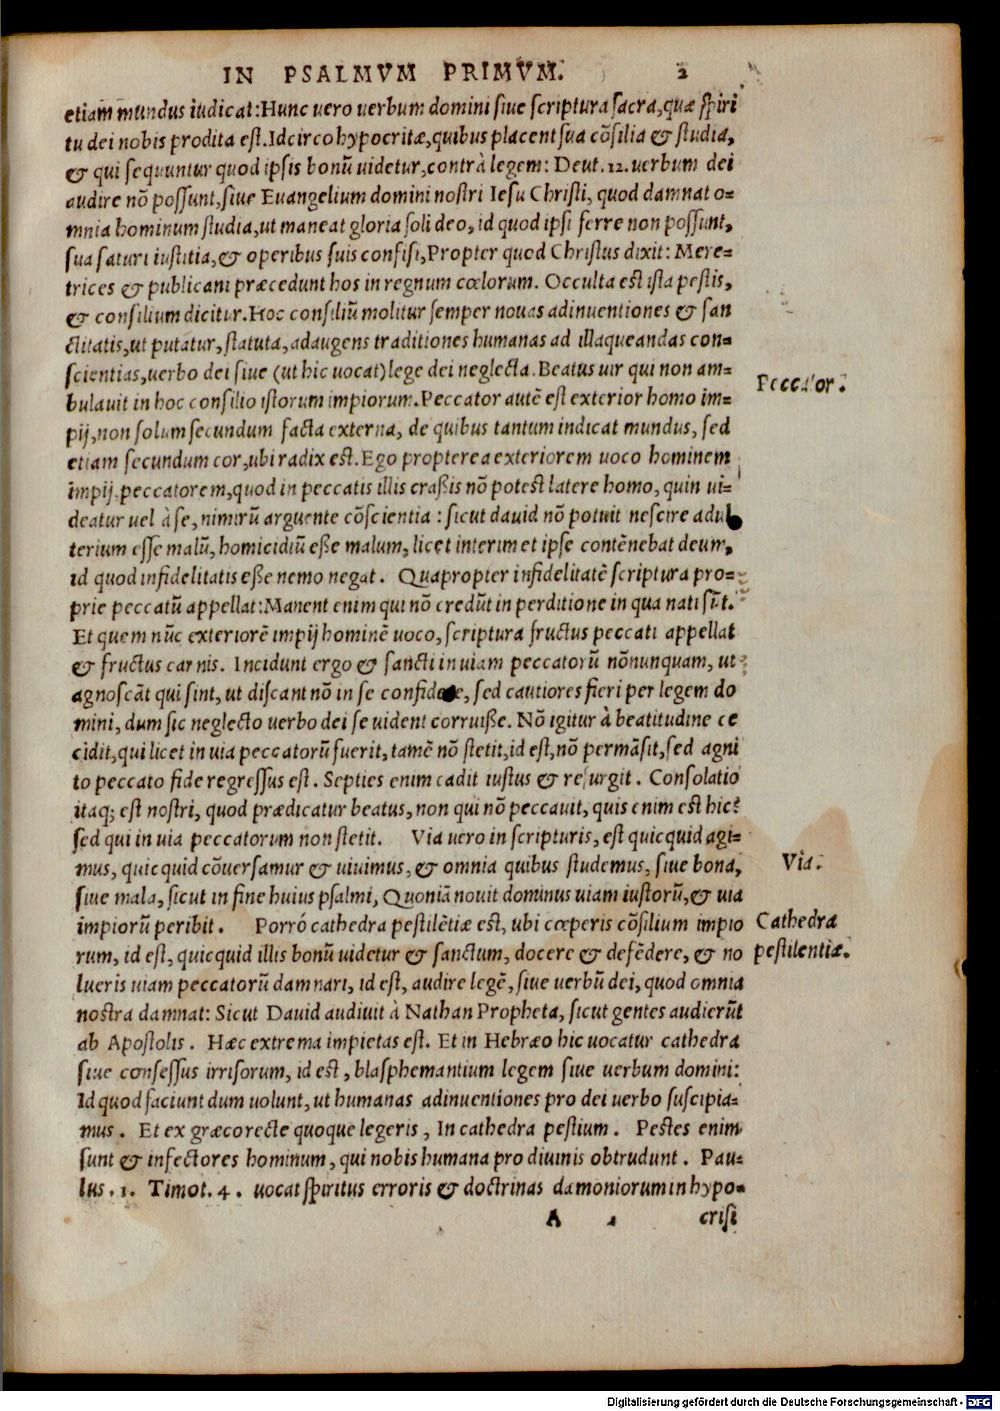 IN PSALMVM PRIMVM. 2
etiam mundus iudicat: Hunc uero uerbum domini siue scriptura sacra, quæ spiri
tu dei nobis prodita est. Idcirco hypocritæ, quibus placent sua cõsilia & studia,
& qui sequuntur quod ipsis bonũ uidetur, contrà legem: Deut. 12. uerbum dei
audire nõ possunt, siue Euangelium domini nostri Iesu Christi, quod damnat o=
mnia hominum studia, ut maneat gloria soli deo, id quod ipsi ferre non possunt,
sua saturi iustitia, & operibus suis confisi, Propter quod Christus dixit: Mere=
trices & publicani præcedunt hos in regnum cœlorum. Occulta est ista pestis,
& consilium dicitur. Hoc consiliũ molitur semper nouas adinuentiones & san
ctitatis, ut putatur, statuta, adaugens traditiones humanas ad illaqueandas con=
scientias, uerbo dei siue (ut hic uocat) lege dei neglecta. Beatus uir qui non am=
Peccator.
bulauit in hoc consilio istorum impiorum. Peccator autẽ est exterior homo im=
pij, non solum secundum facta externa, de quibus tantum indicat mundus, sed
etiam secundum cor, ubi radix est. Ego propterea exteriorem uoco hominem
impij peccatorem, quod in peccatis illis craßis nõ potest latere homo, quin ui=
deatur uel à se, nimirũ arguente cõscientia: sicut dauid nõ potuit nescire adul
terium esse malũ, homicidiũ eße malum, licet interim et ipse contẽnebat deum,
id quod infidelitatis eße nemo negat. Quapropter infidelitatẽ scriptura pro=
prie peccatũ appellat: Manent enim qui nõ credũt in perditione in qua nati sũt.
Et quem nũc exteriorẽ impij hominẽ uoco, scriptura fructus peccati appellat
& fructus carnis. Incidunt ergo & sancti in uiam peccatorũ nõnunquam, ut
agnoscãt qui sint, ut discant nõ in se confidere, sed cautiores fieri per legem do
mini, dum sic neglecto uerbo dei se uident corruiße. Nõ igitur à beatitudine ce
cidit, qui licet in uia peccatorũ fuerit, tamẽ nõ stetit, id est, nõ permãsit, sed agni
to peccato fide regressus est. Septies enim cadit iustus & resurgit. Consolatio
itaq; est nostri, quod prædicatur beatus, non qui nõ peccauit, quis enim est hic?
sed qui in uia peccatorum non stetit. Via uero in scripturis, est quicquid agi=
mus, quicquid cõuersamur & uiuimus, & omnia quibus studemus, siue bona,
Via.
siue mala, sicut in fine huius psalmi, Quoniã nouit dominus uiam iustorũ, & uia
impiorũ peribit. Porró cathedra pestilẽtiæ est, ubi cœperis cõsilium impio
Cathedra
rum, id est, quicquid illis bonũ uidetur & sanctum, docere & defẽdere, & no
pestilentiæ.
lueris uiam peccatorũ damnari, id est, audire legẽ, siue uerbũ dei, quod omnia
nostra damnat: Sicut Dauid audiuit à Nathan Propheta, sicut gentes audierũt
ab Apostolis. Hæc extrema impietas est. Et in Hebræo hic uocatur cathedra
siue consessus irrisorum, id est, blasphemantium legem siue uerbum domini:
Id quod faciunt dum uolunt, ut humanas adinuentiones pro dei uerbo suscipia=
mus. Et ex græco recte quoque legeris, In cathedra pestium. Pestes enim
sunt & infectores hominum, qui nobis humana pro diuinis obtrudunt. Pau=
lus. 1. Timot. 4. uocat spiritus erroris & doctrinas dæmoniorum in hypo=
A 2 crisi
Digitalisierung gefördert durch die Deutsche Forschungsgemeinschaft - DFG